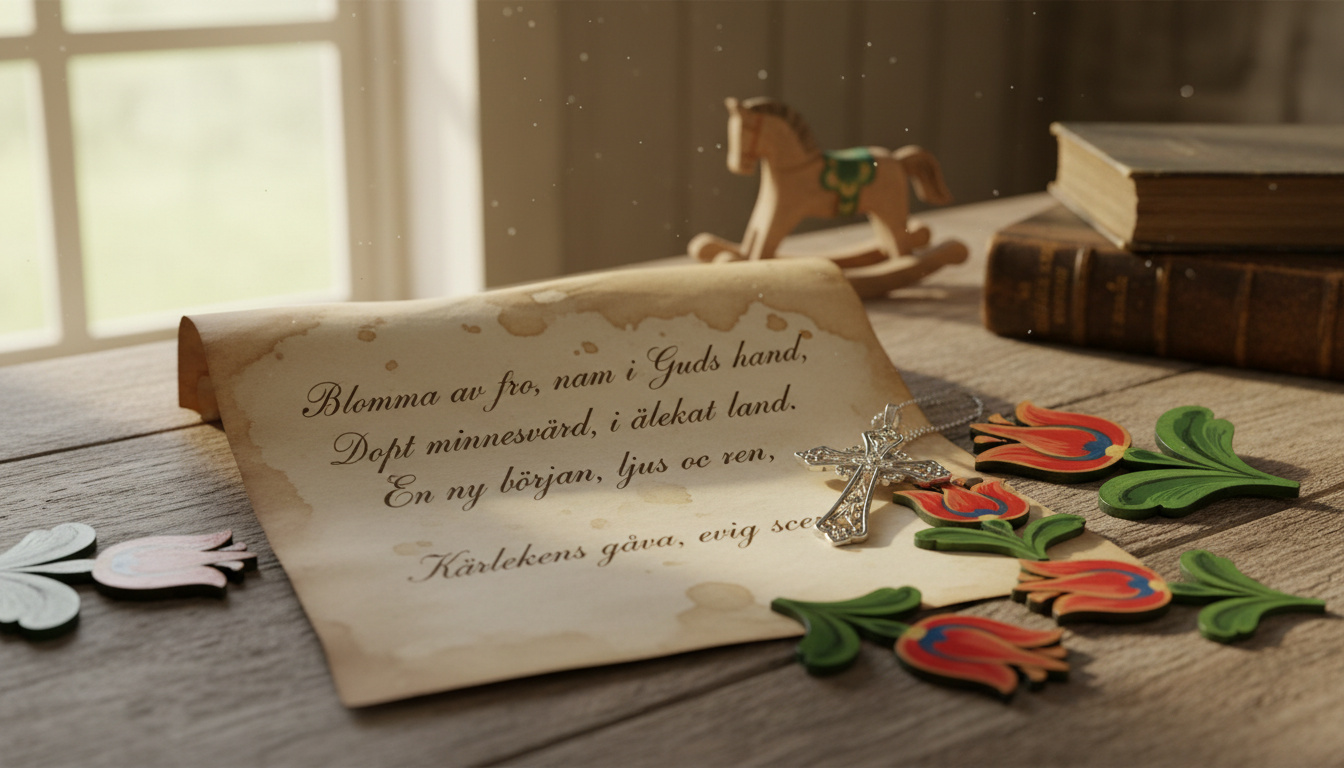 Blomma av fro, nam i Guds hand,
Dopt minnesvärd, i älekat land.
En ny början, ljus oc ren,
Kärlekens gåva, evig sce